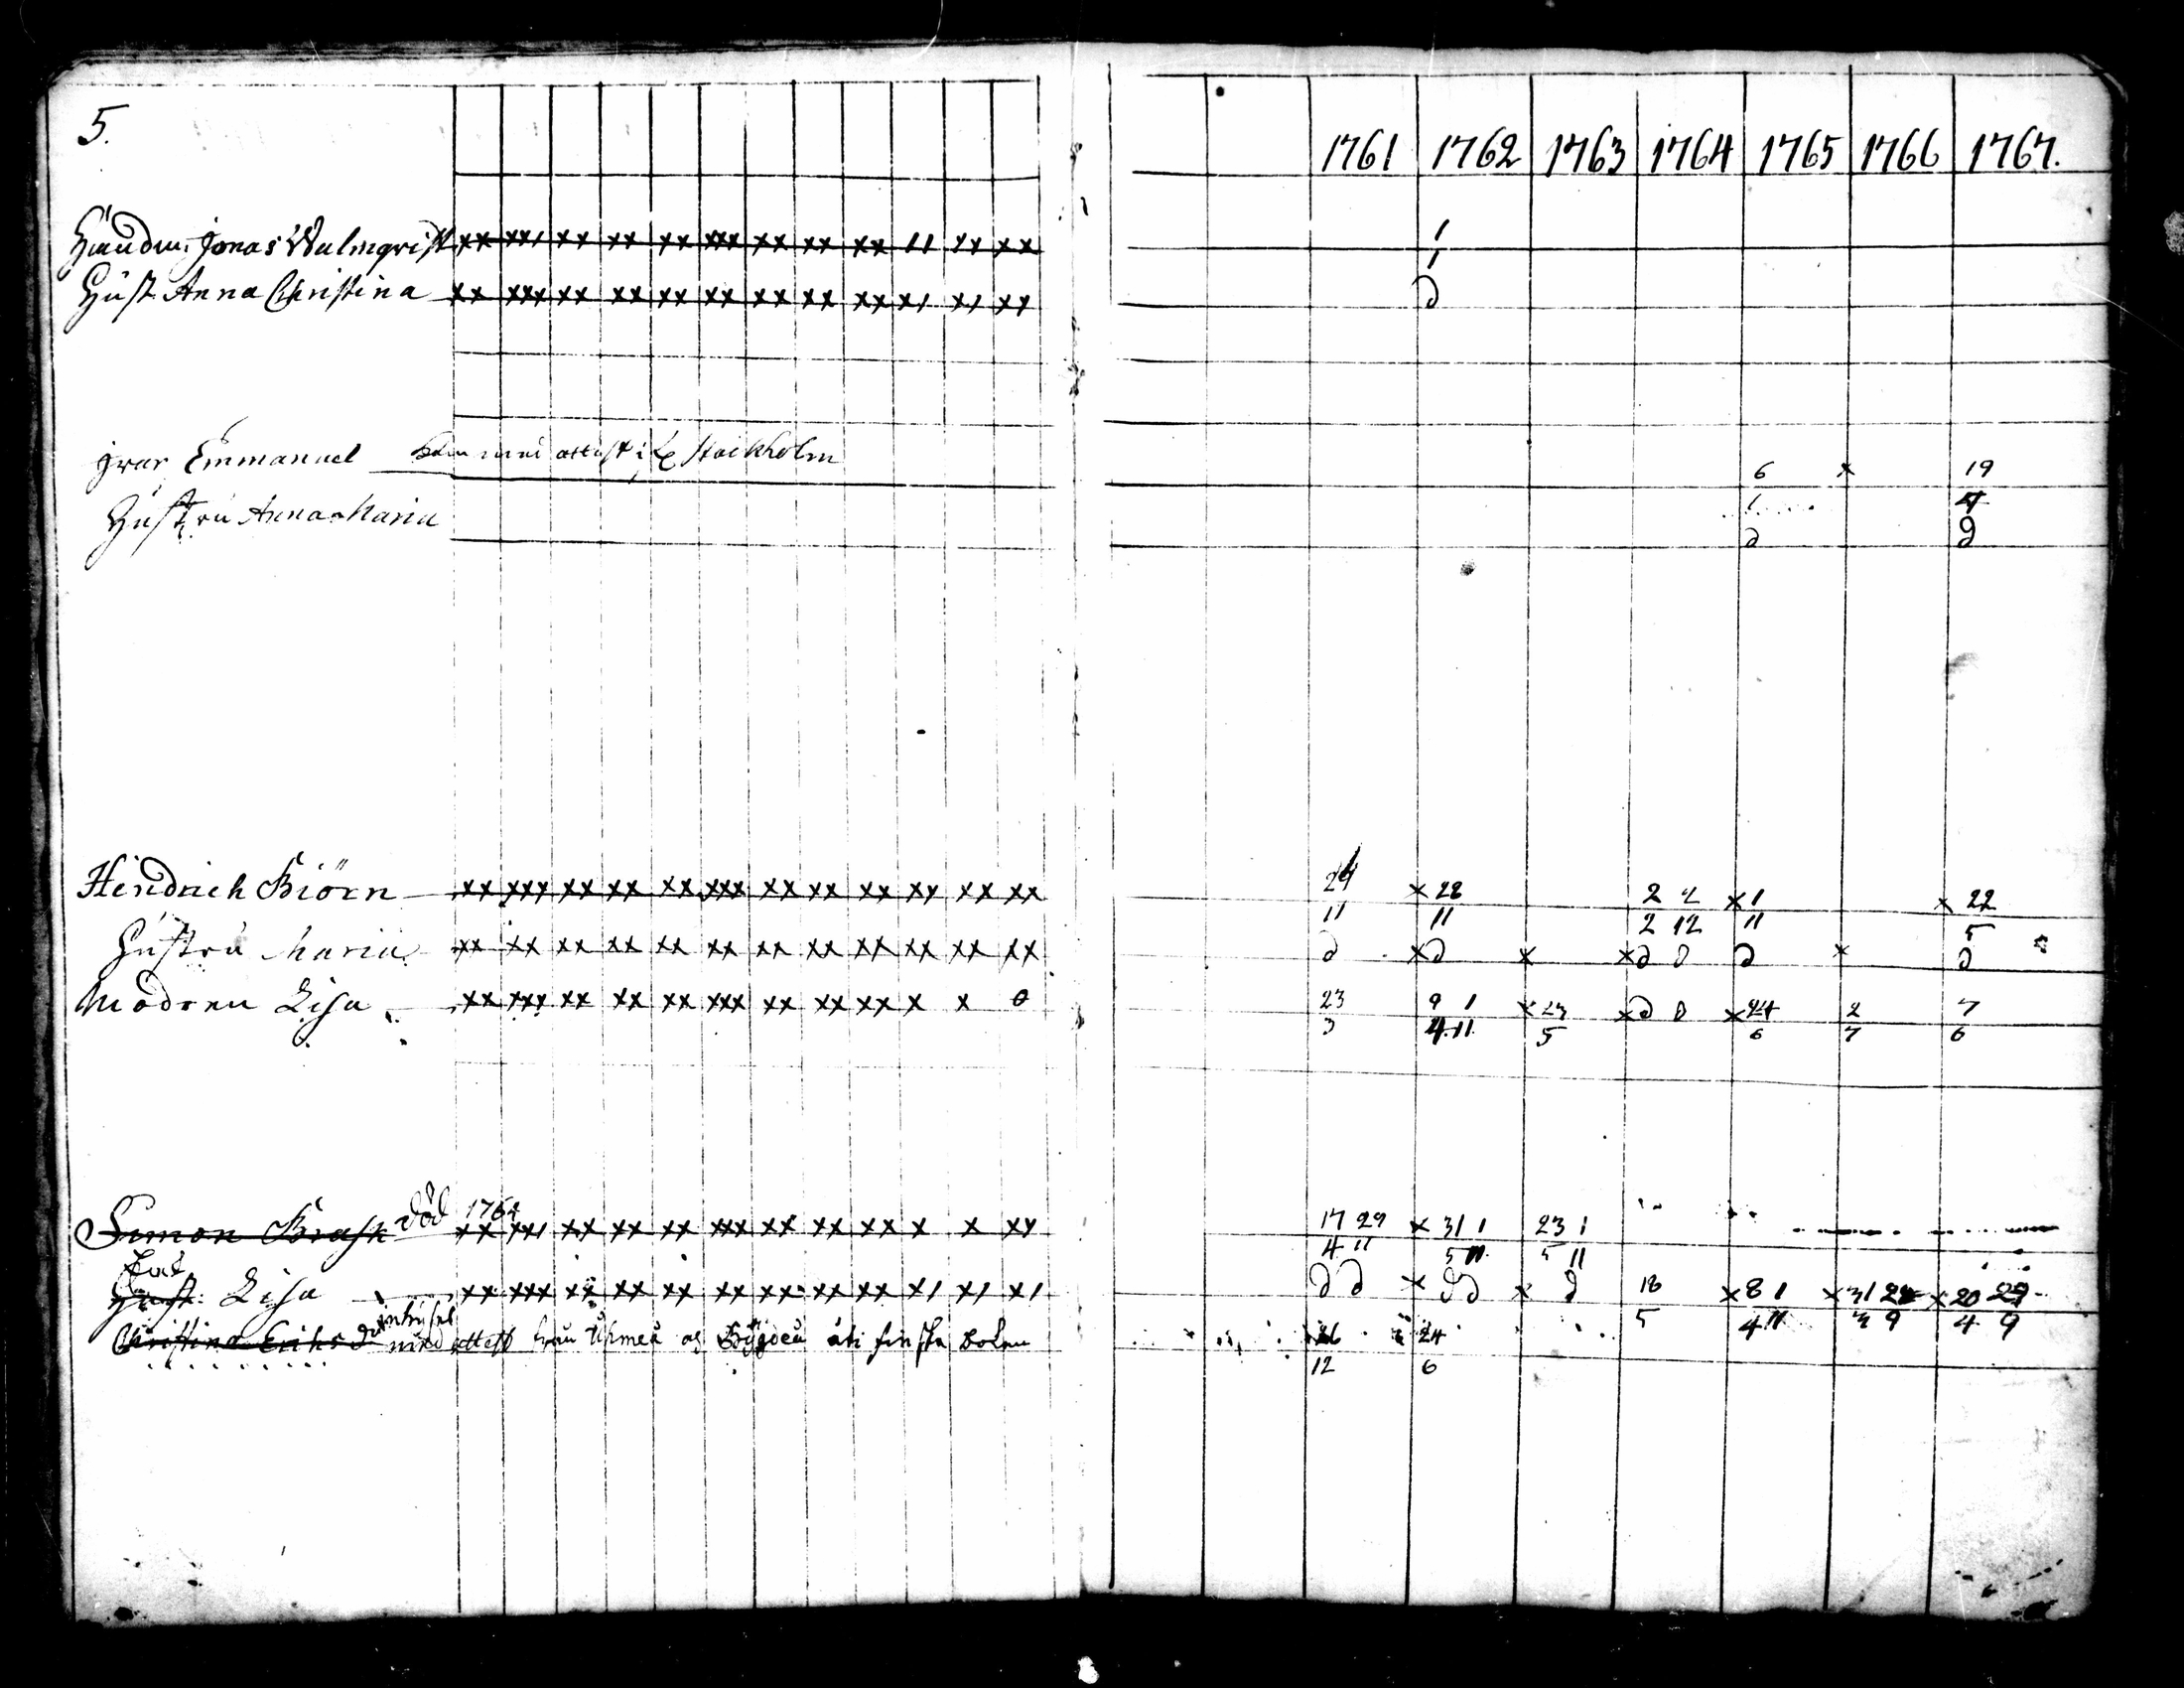 5.
1761 1762 1763 1764 1765 1766 1767.
Jonas Walmqvist xx xxı xx xx xx xxx xx xx xx ıı xx xx 1
1
Hust Anna Christina xx xxx xx xx xx xx xx xx xx xı xı xx d
Ivar Emmanuel attest i Stockholm 6 x 19
Hustru Anna Maria 1 4
d d
Hendrich Biörn xx xxx xx xx xx xxx xx xx xx xx xx xx 24 x 28 2 2 x 1 x 22
11 11 2 12 11 5
Hustru Maria xx xx xx xx xx xx xx xx xx xx xx xx d x d x x d d d x d
Modren Lisa xx xxx xx xx xx xxx xx xx xx x x 0 23 9 1 x 23 x d d x 24 2 7
3 4 11 5 6 7 6
Simon Brask död 1764 xx xxı xx xx xx xxx xx xx xx x x xx 17 29 x 31 1 23 1
4 11 5 11 5 11
Enk
Hust: Lisa xx xxx xx xx xx xx xx xx xx xı xı xı d d x d d x d 18 x 8 1 x 31 x 20 29
5 4 11 3 9 4 9
Christina Eriksd attest från Uhmeå og Bygdeå uti finska boken 26 24
12 6